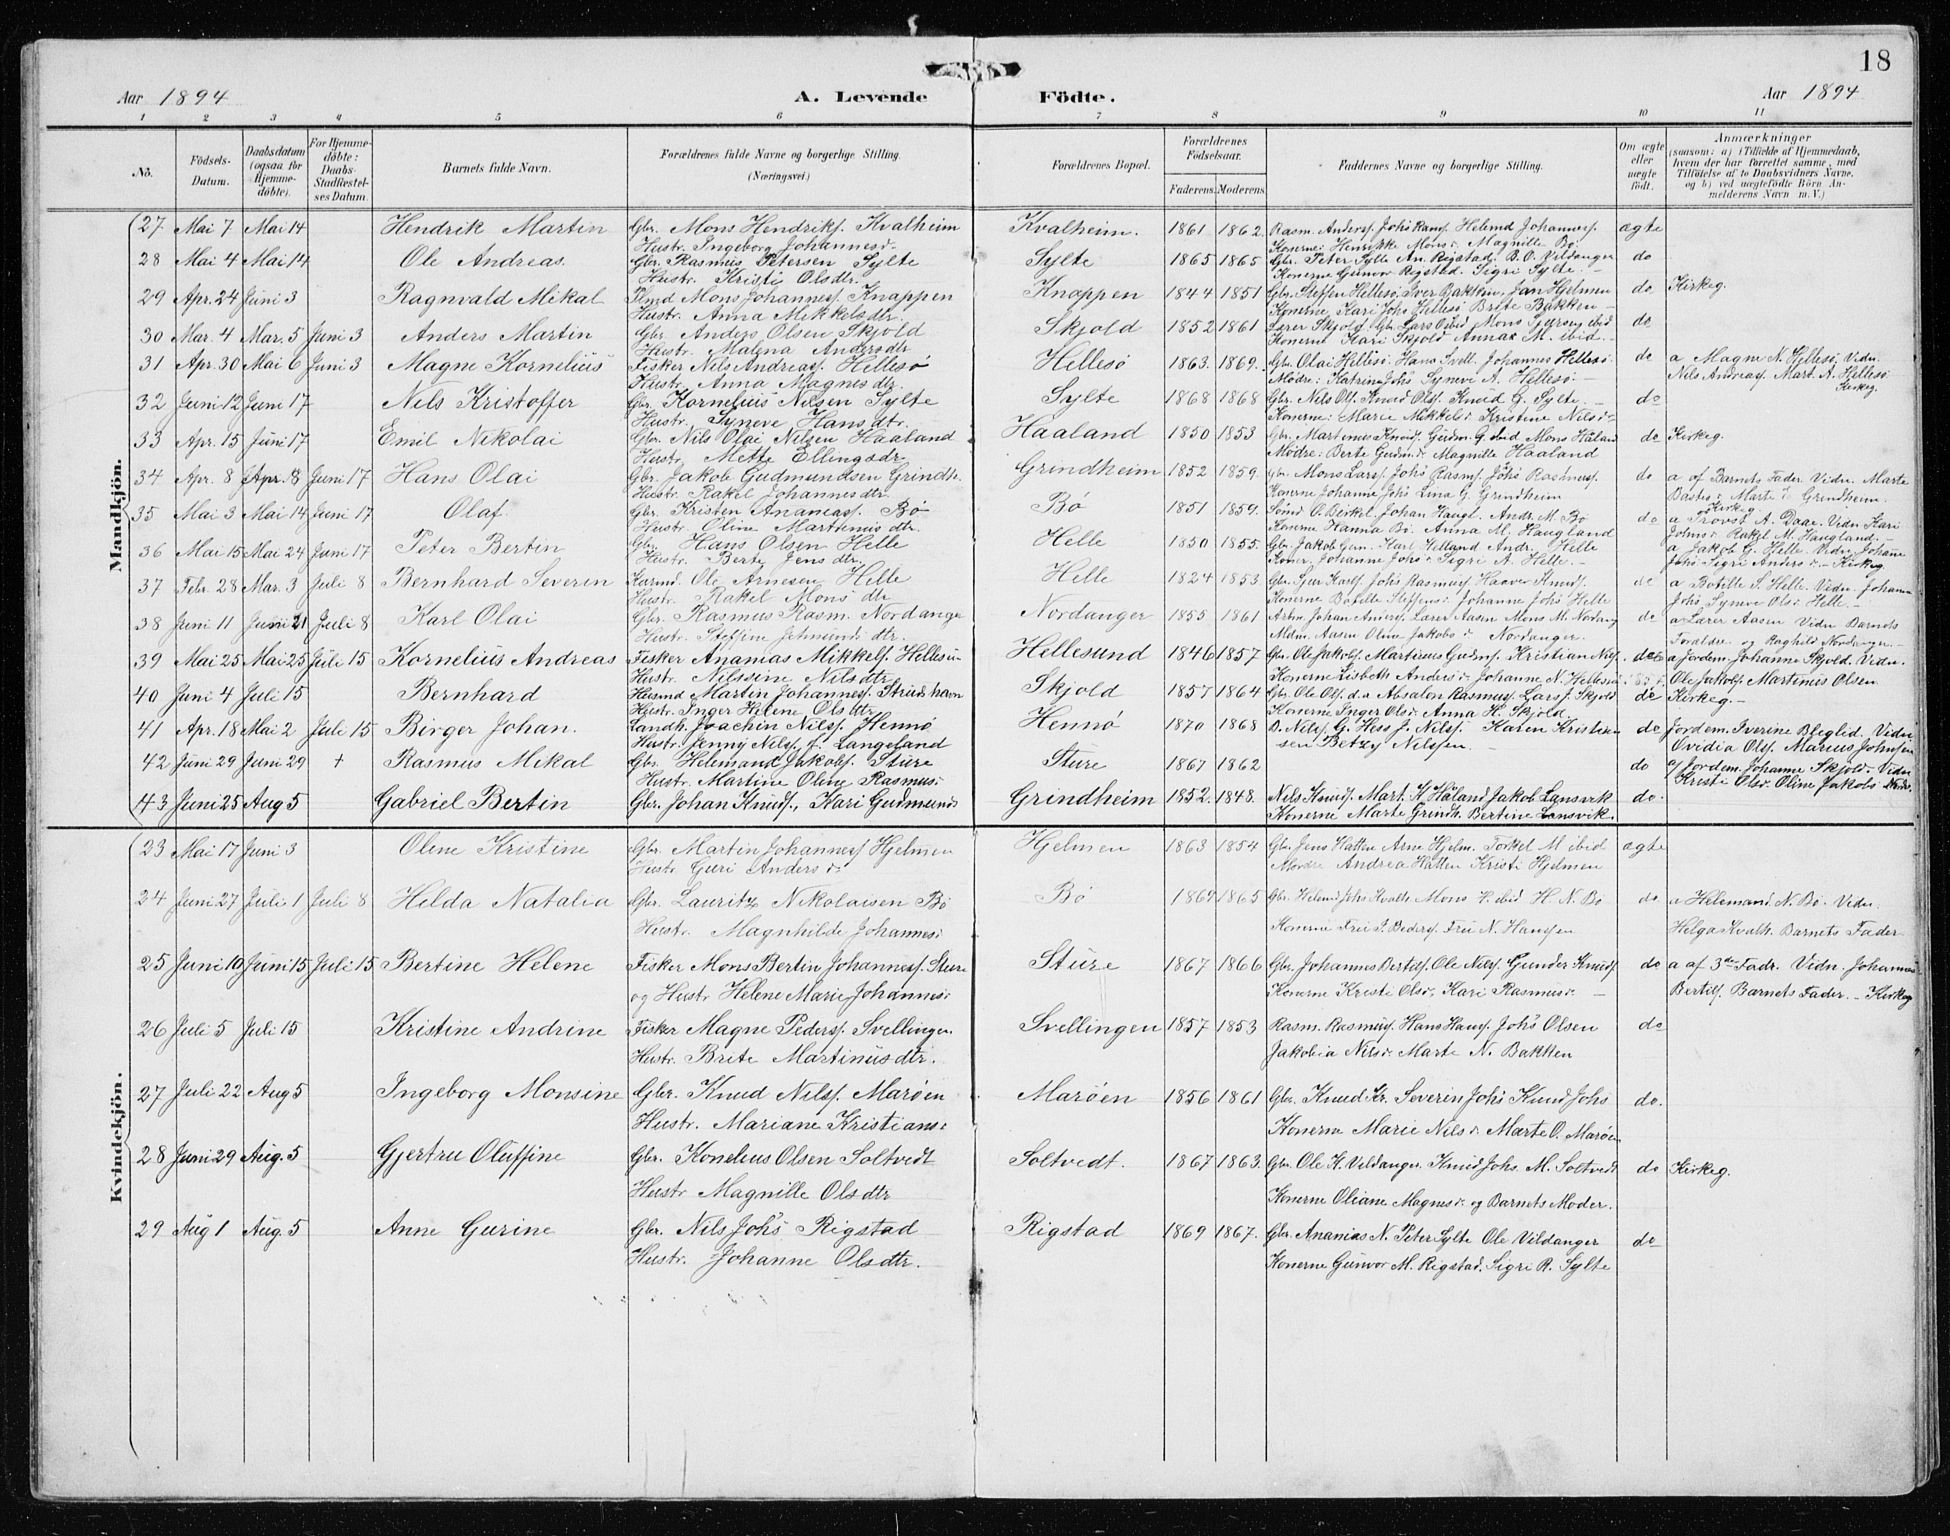 18
Aar 1894 A. Levende Födte. Aar 1894
1 2 3 4 5 6 7 8 9 10 11
No. Födsels-Datum. Daabsdatum (ogsaa for Hjemme-döbte). For Hjemme-döbte: Daabs-Stadfæstel-ses Datum. Barnets fulde Navn. Forældrenes fulde Navne og borgerlige Stilling. (Næringsvei) Forældrenes Bopæl. Forældrenes Födselsaar. Faderens. Moderens. Faddernes Navne og borgerlige Stilling. Om ægte eller uægte født. Anmærkninger (saasom: a) i Tilfælde af Hjemmedaab, hvem der har forrettet samme, med Tilföielse af to Daabsvidners Navne, og b) ved uægtefödte Börn An-melderens Navn m. V.)
Mandkjön.
27 Mai 7 Mai 14 Hendrik Martin Gbr. Mons Hendriks. Kvalheim Kvalheim. 1861 1862 Rasm. Anders. Johs Rasm. Helmd Johannes. ægte
Hustr. Ingeborg Johannesd. Konerne: Henrikke Monsd. Magnille Bö
28 Mai 4 Mai 14 Ole Andreas Gbr. Rasmus Petersen Sylte Sylte 1865 1865 Gbr. Peter Sylte An. Rigstad. B. O. Vildanger do
Hustr. Kristi Olsdtr. Konerne Gunvor Rigstad. Sigri Sylte. -
29 Apr. 24 Juni 3 Ragnvald Mikal Mons Johannes. Knappen Knappen 1844 1851 Gbr. Steffen Hellesö Iver Bakken, Jan Hjelmen do Kirkeg.
Hustr. Anna Mikkelsdtr. Konerne Kari Johs Hellesö Brite Bakken -
30 Mar. 4 Mar. 5 Juni 3 Anders Martin Gbr. Anders Olsen Skjold Skjold 1852 1861 Lærer Skjold Gbr. Lars ibid Mons ibid do
Hustr. Malena Andersdtr Konerne Kari Skjold Annas M. ibid. -
31 Apr. 30 Mai 6 Juni 3 Magne Kornelius Fisker Nils Andreas. Hellesö Hellesö 1863. 1869. Gbr. Olai Hellesö Hans Svell. Johannes Hellesö do a Magne N. Hellesö Vidn.
Hustr. Anna Magnesdtr. Mödre: Katrina Johs Syneve A. Hellesö. - Nils Andreas. Mart. A. Hellesö
Kirkeg.
32 Juni 12 Juni 17 Nils Kristoffer Gbr. Kornelius Nilsen Sylte Sylte 1868 1868 Gbr. Nils Ols. Knud Ols. Knud G. Sylte. - do
Hustr. Syneve Hansdtr. Konerne: Marie Mikkelsd. Kristine Nilsd.
33 Apr. 15 Juni 17 Emil Nikolai Gbr. Nils Olai Nilsen Haaland Haaland 1850 1853 Gbr. Martinus Knuds. Gudm. G. ibid Mons Håland do Kirkeg.
Hustr. Mette Ellingsdtr Mödre: Berte Gudm.d. Magnille Haaland
34 Apr. 8 Apr. 8 Juni 17 Hans Olai Gbr. Jakob Gudmundsen Grindh. Grindheim 1852 1859. Gbr. Mons Lars. Johs Rasms. Johs Rasmus. do a af Barnets Fader. Vidn. Marte
Hustr. Rakel Johannesdtr. Konerne Johanne Johs Lina G. Grindheim Marte Grindheim.
Kirkeg.
35 Mai 3 Mai 14 Juni 17 Olaf. Gbr. Kristen Ananias. Bö Bö 1851 1859. O. Birkel. Johan Haugl. Andr. M. Bö do a Provst A. Daae. Vidn. Kari
Hustr. Oline Martinusdtr. Konerne Hanna Bö. Anna M. Haugland Rakel M. Haugland. -
36 Mai 15 Mai 24 Juni 17 Peter Bertin Gbr. Hans Olsen Helle Helle 1850 1855. Gbr. Jakob Gun. Karl Helland Andr. Helle a Jakob G. Helle. Vidn. Johanne
Hustr. Berte Jensdtr. Koner Johanne Johsd. Sigri A. Helle. - Johs Sigri Andersd. - Kirkeg.
37 Febr. 28 Mar. 3 Juli 8 Bernhard Severin Ole Arnesen Helle Helle 1824 1853 Gbr. Johs Rasmus. Haaver Knuds. do a Botille S. Helle. Vidn. Johanne
Hustr. Rakel Mons dtr Konerne Botille Steffensd. Johanne Johs Helle Johs, Syneve Olsd. Helle. -
38 Juni 11 Juni 21 Juli 8 Karl Olai Gbr. Rasmus Rasm. Nordange Nordanger 1855 1861 Johan Lærer Aasen Mons M. Nordang do a Lærer Aasen Vidn Barnets
Hustr. Steffine dtr. Aasen Oline Jakobsd. Nordanger. Foræld. og Raghild Nordanger -
39 Mai 25 Mai 25 Juli 15 Kornelius Andreas Fisker Ananias Mikkels. Hellesun Hellesund 1846 1857 Gbr. Ole Jakobs. Martinus Gudms. Kristian Nils. do a Jordem. Johanne Skjold. Vidn.
Hustr. Nilssine Nilsdtr Konerne Lisbeth Andersd. Johanne N. Hellesun Ole Jakobs. Martinus Olsen
40 Juni 4 Juli 15 Bernhard Husmd Martin Johannes. Skjold 1857 1864 Gbr. Ole Ols. Absalon Rasmus. Lars J. Skjold do Kirkeg. -
Hustr. Inger Helene Olsdtr Konerne Inger Olsd. Anna H. Skjold.
41 Apr. 18 Mai 2 Juli 15 Birger Johan. Landh. Joachin Nils. Hennö Hennö 1870 1868 D. Nils. G. Hess J. Nils. Karen Kristen do Jordem. Iverine Bleglid. Vidn
Hustr. Jenny Nils. f. Langeland sen Betzy Nilssen. - Ovidia Ols. Marius Johnsen
42 Juni 29 Juni 29 + Rasmus Mikal Gbr. Helemand Jakobs. Sture Sture 1867 1862 do a Jordem. Johanne Skjold. Vidn
Hustr. Martine Oline Rasmusd. Kristi Olsd. Oline Jakobsd
43 Juni 25 Aug 5 Gabriel Bertin Gbr. Johan Knuds., Kari Gudmunds Grindheim 1852. 1848. Nils Knuds. Mart. K Håland Jakob Lansvik do.
Konerne Marte Grindh. Bertine Lansvik.
Kvindekjön.
23 Mai 17 Juni 3 Oline Kristine Gbr. Martin Johannes. Hjelmen Hjelmen 1863 1854 Gbr. Jens Hatten Arne Hjelm. Torkel M ibid ægte
Hustr Guri Andersd. Mödre Andrea Hatten Kristi Hjelmen
24 Juni 27 Juli 1 Juli 8 Helda Natalia Gbr. Lauritz Nikolaisen Bö Bö 1869 1865 Gbr. Helemd Johs Kvalh. Mons H. ibid H. N. Bö do a Helemand N. Bö. Vidn.
Hustr. Magnhilde Johannesd Konerne Frü J. Peders. Frü N. Hansen Helga Kvalh. Barnets Fader
25 Juni 10 Juni 15 Juli 15 Bertine Helene Fisker Mons Bertin Johannes. Sture Sture 1867 1866 Gbr. Johannes Bertils. Ole Nils. Gunder Knuds. do a af 3de Fadr. Vidn. Johannes
og Hustr Helene Marie Johannesd Konerne Kristi Olsd. Kari Rasmusd. - Bertils. Barnets Fader. - Kirkeg
26 Juli 5 Juli 15 Kristine Andrine Fisker Magne Peders. Svellingen Svellingen 1857 1853 Rasm. Rasmus. Hans Hans. Johs Olsen do
Hustr. Brite Martinusdtr. Jakobia Nilsd. Marte N. Bakken
27 Juli 22 Aug 5 Ingeborg Monsine Gbr. Knud Nils. Maröen Maröen 1856 1861 Gbr. Knud Kr. Severin Johs Knud Johs do.
Hustr. Mariane Kristiansd Konerne Marie Nilsd. Marte O. Maröen
28 Juni 29 Aug. 5 Gjertru Oluffine Gbr. Konelius Olsen Soltvedt Soltvedt. 1867 1863. Gbr. Ole K. Vildanger. Knud Johs. M. Soltvedt do Kirkeg.
Hustr Magnille Olsdtr Konerne Oliane Magnesd. og Barnets Moder.
29 Aug 1 Aug. 5 Anne Gurine Gbr. Nils Johs Rigstad Rigstad 1869 1867. Gbr. Ananias N. Peter Sylte Ole Vildanger do
Hustr. Johanne Olsdtr. Konerne Gunvor M. Rigstad. Sigri R. Sylte